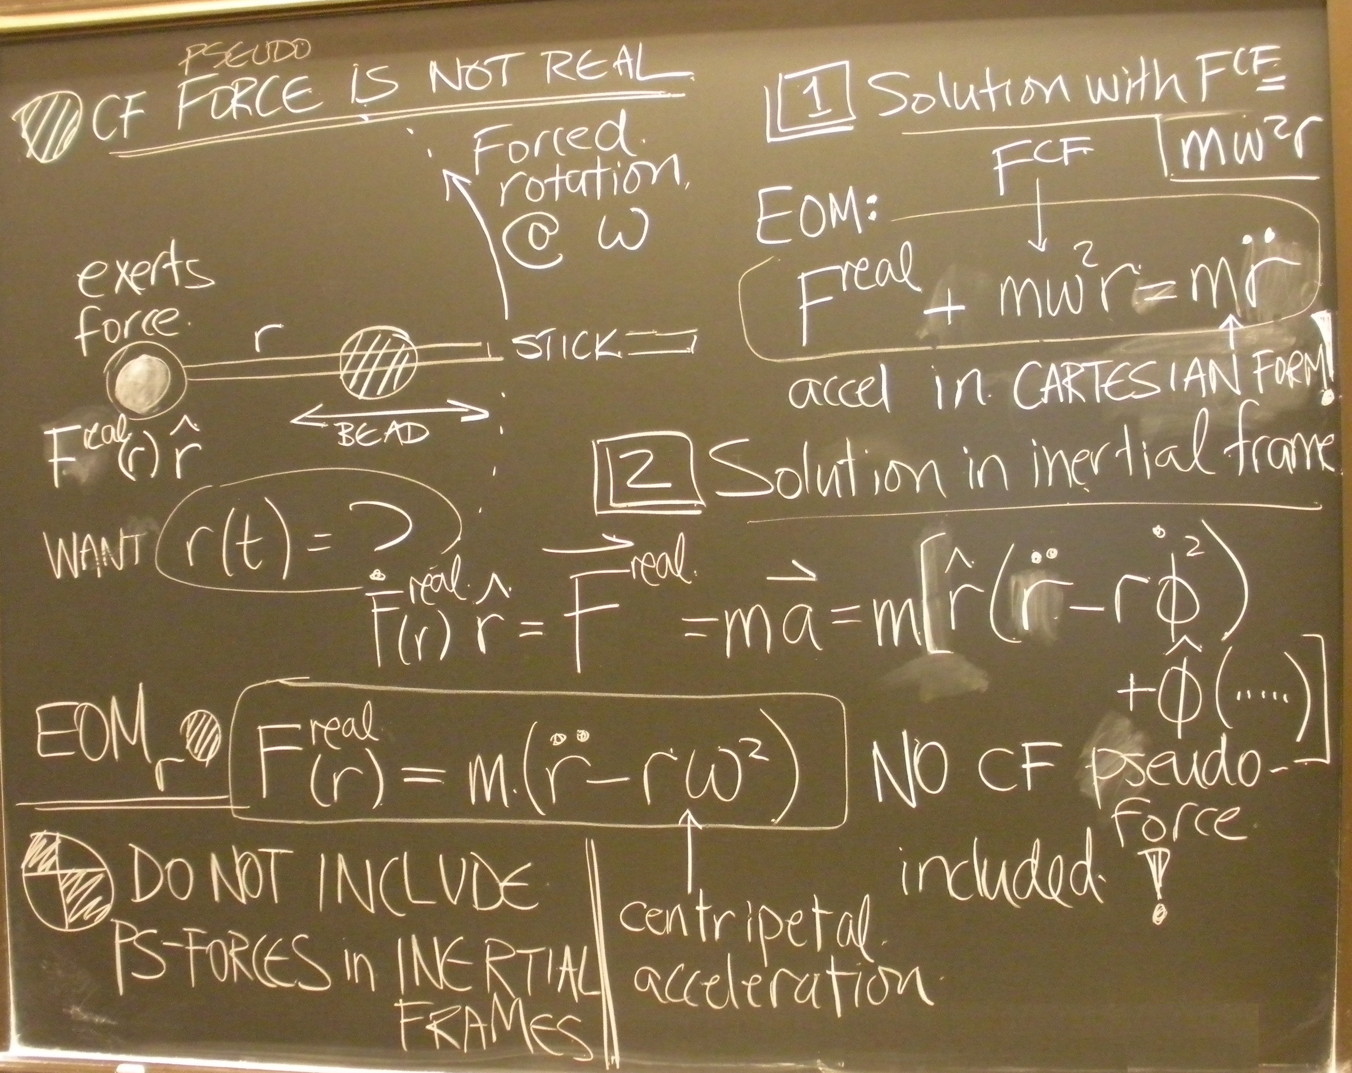 PSEUDO
CF FORCE IS NOT REAL
Forced
rotation
@ ω
exerts
force.
r
STICK
BEAD
F^real(r) r̂
WANT r(t) = ?
1 Solution with F^CF
F^CF mω²r
EOM:
F^real + mω²r = mr̈
accel in CARTESIAN FORM!
2 Solution in inertial frame
F^real(r) r̂ = F⃗^real = ma⃗ = m[r̂(r̈ - rφ̇²)
+φ̂(.....)]
EOM_r F^real(r) = m(r̈ - rω²)
NO CF pseudo-
force
included!
centripetal
acceleration
DO NOT INCLUDE
PS-FORCES in INERTIAL
FRAMES